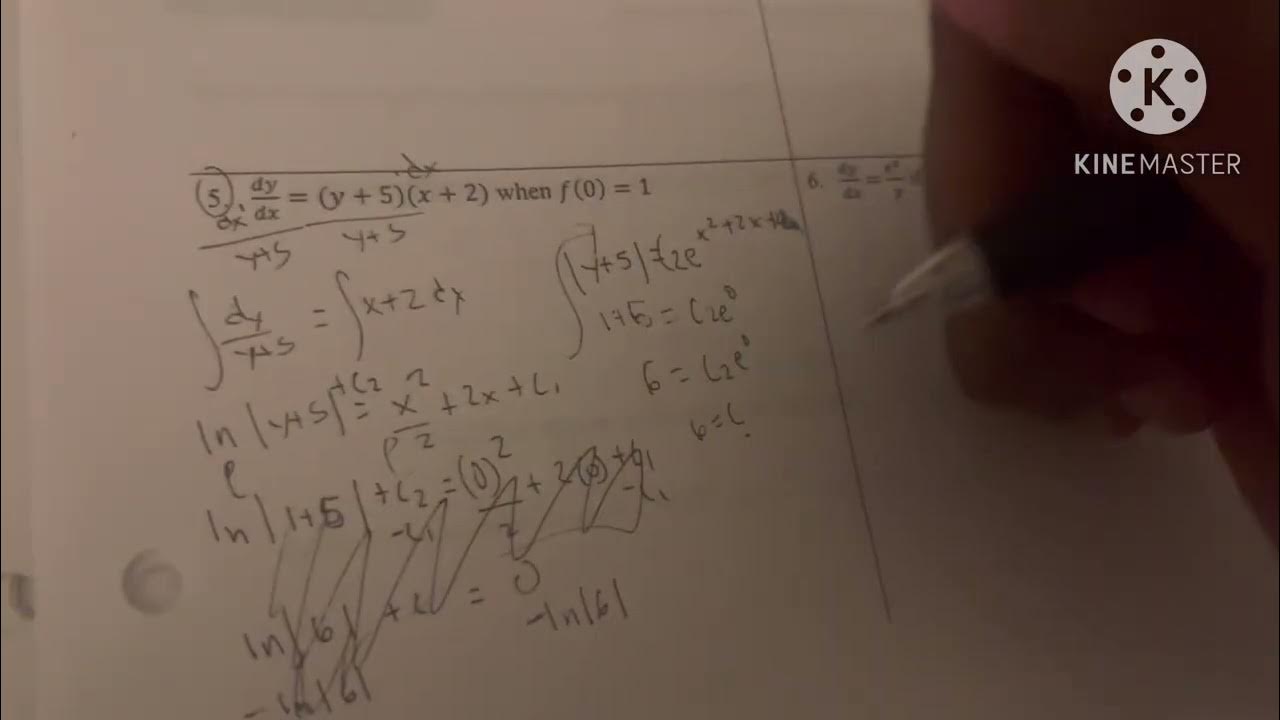 K
KINEMASTER
dx
5. dy/dx = (y + 5)(x + 2) when f(0) = 1
dx
y+5 y+5
∫ dy/y+5 = ∫ x+2 dx
ln |y+5| +C2 = x^2/2 + 2x + C1
e e
ln |1+5| + C2 = (0)^2/2 + 2(0) + C1
-C1 -C1
ln |6| + C = 0
-ln|6| -ln|6|
|y+5| = C2e^x^2+2x
1+5 = C2e^0
6 = C2e^0
6 = C
6. dy/dx =